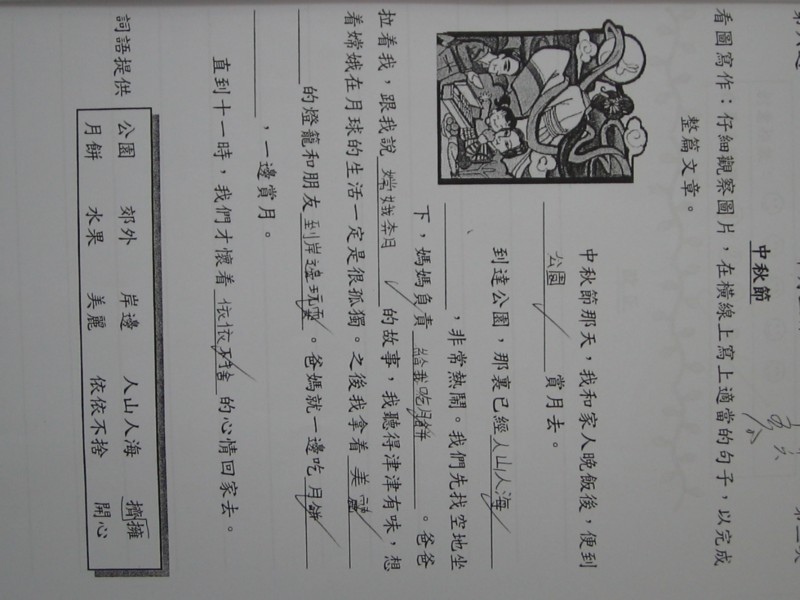 看圖寫作：仔細觀察圖片，在橫線上寫上適當的句子，以完成
整篇文章。
中秋節
中秋節那天，我和家人晚飯後，便到
公園 賞月去。
到達公園，那裏已經人山人海
，非常熱鬧。我們先找空地坐
下，媽媽負責 給我吃月餅 。爸爸
拉着我，跟我說 嫦娥奔月 的故事，我聽得津津有味，想
着嫦娥在月球的生活一定是很孤獨。之後我拿着 美麗
的燈籠和朋友 到岸邊玩耍 。爸媽就一邊吃 月餅
，一邊賞月。
直到十一時，我們才懷着 依依不捨 的心情回家去。
詞語提供
公園 郊外 岸邊 人山人海 擠擁
月餅 水果 美麗 依依不捨 開心